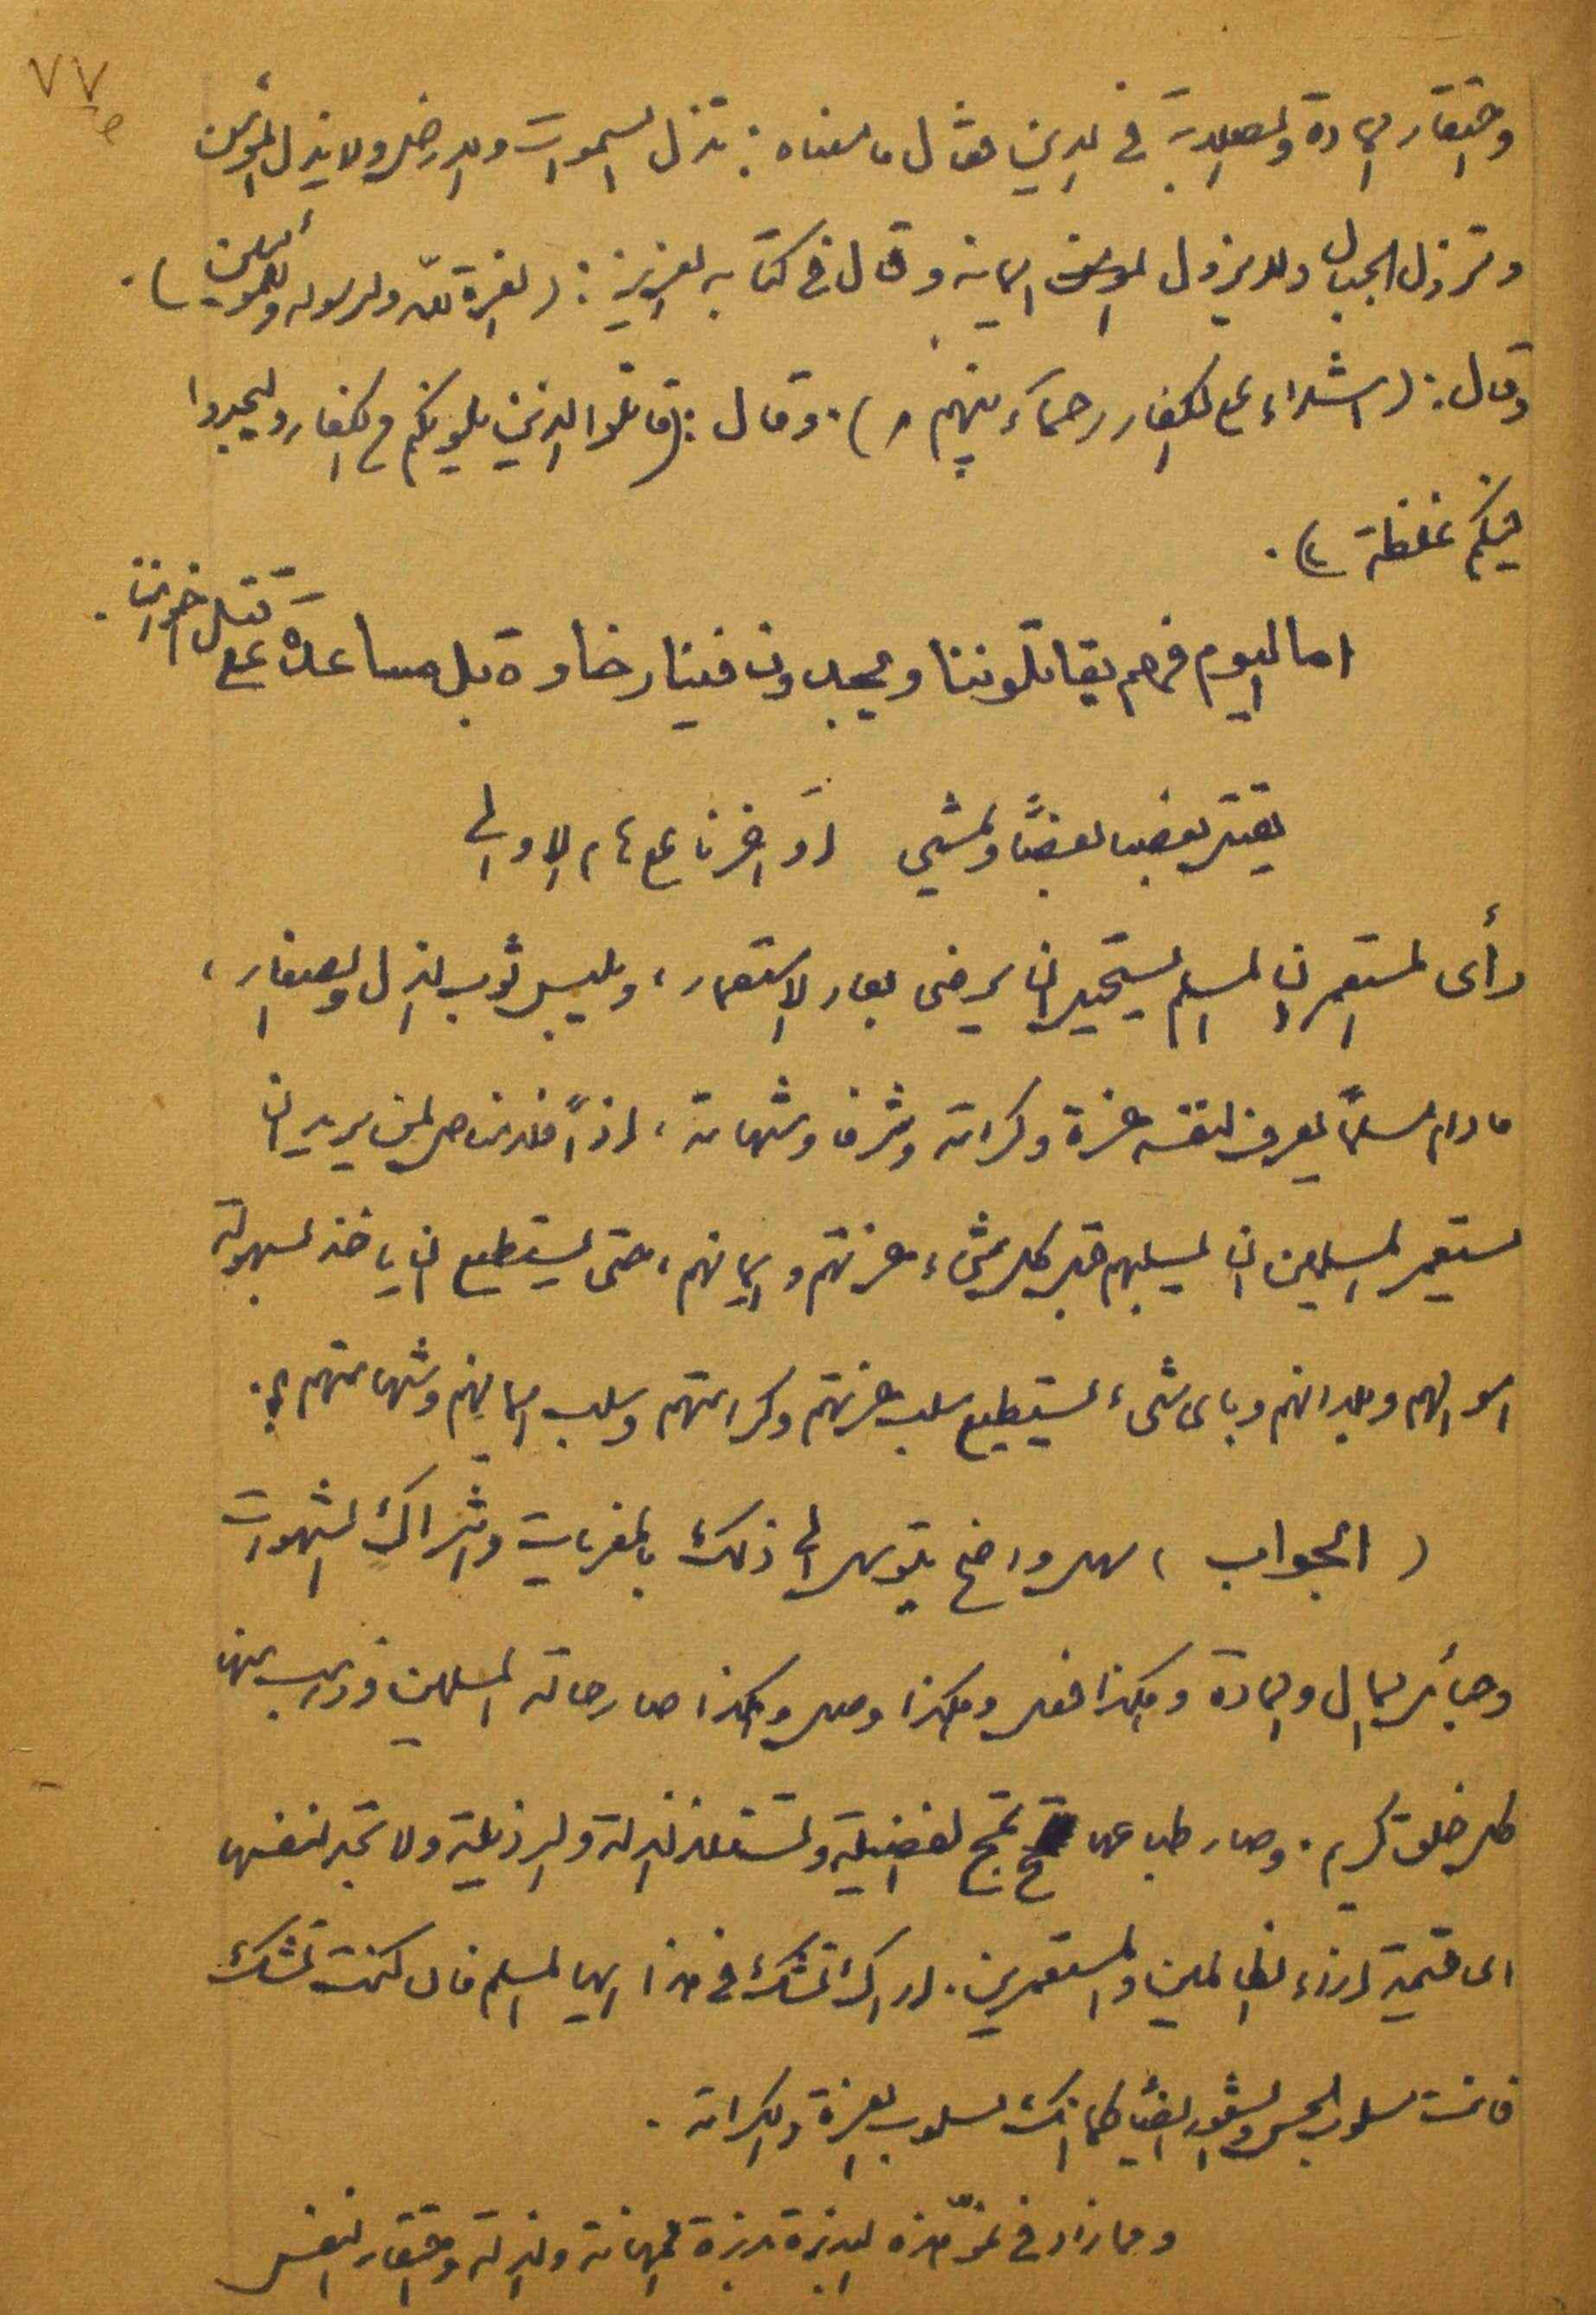 ٧٧
واحتقار المادة والصلابة في الدين فقال ما معناه : تزل السموات والارض ولا يذل المؤمن
وتزول الجبال ولا يزول المؤمن ايمانه وقال في كتابه العزيز : ( العزة لله ولرسوله وللمؤمنين ) .
وقال : ( اشداء على الكفار رحماء بينهم ) . وقال : ( قاتلوا الذين يلونكم من الكفار وليجدوا
فيكم غلظة ) .
اما اليوم فهم يقاتلوننا ويجدون فينا رخاوة بل مساعدة على قتل اخواننا .
يقتل بعضنا بعضًا ويمشي اواخرنا على هام الاوالي
رأى المستعمر ان المسلم يستحيل ان يرضى بعار الاستعمار ، ويلبس ثوب الذل والصغار ،
ما دام مسلمًا يعرف لنفسه عزة وكرامة وشرفا وشهامة ، اذاً فلا مناص لمن يريد ان
يستعمر المسلمين ان يسلبهم قبل كل شيء عزتهم وايمانهم ، حتى يستطيع ان يأخذ بسهولة
اموالهم وبلدانهم وبأى شيء يستطيع سلب عزتهم وكرامتهم وسلب ايمانهم وشهامتهم ؟ .
( الجواب ) سهل واضح يتوسل الى ذلك بالمغريات واشراك الشهوات
وحبائل المال والمادة وهكذا فعل وهكذا وصل وهكذا صار حالة المسلمين وذهب منها
كل خلق كريم . وصار طباعها تمج الفضيلة وتستلذ الذلة والرذيلة ولا تجد لنفسها
اى قيمة ازاء الظالمين والمستعمرين . لا اراك تشك في هذا ايها المسلم فان كنت تشك
فانت مسلوب الحس والشعور ايضًا كما انك مسلوب العزة والكرامة .
ومما زاد في نموّ هذه البذرة بذرة المهانة والذلة واحتقار النفس